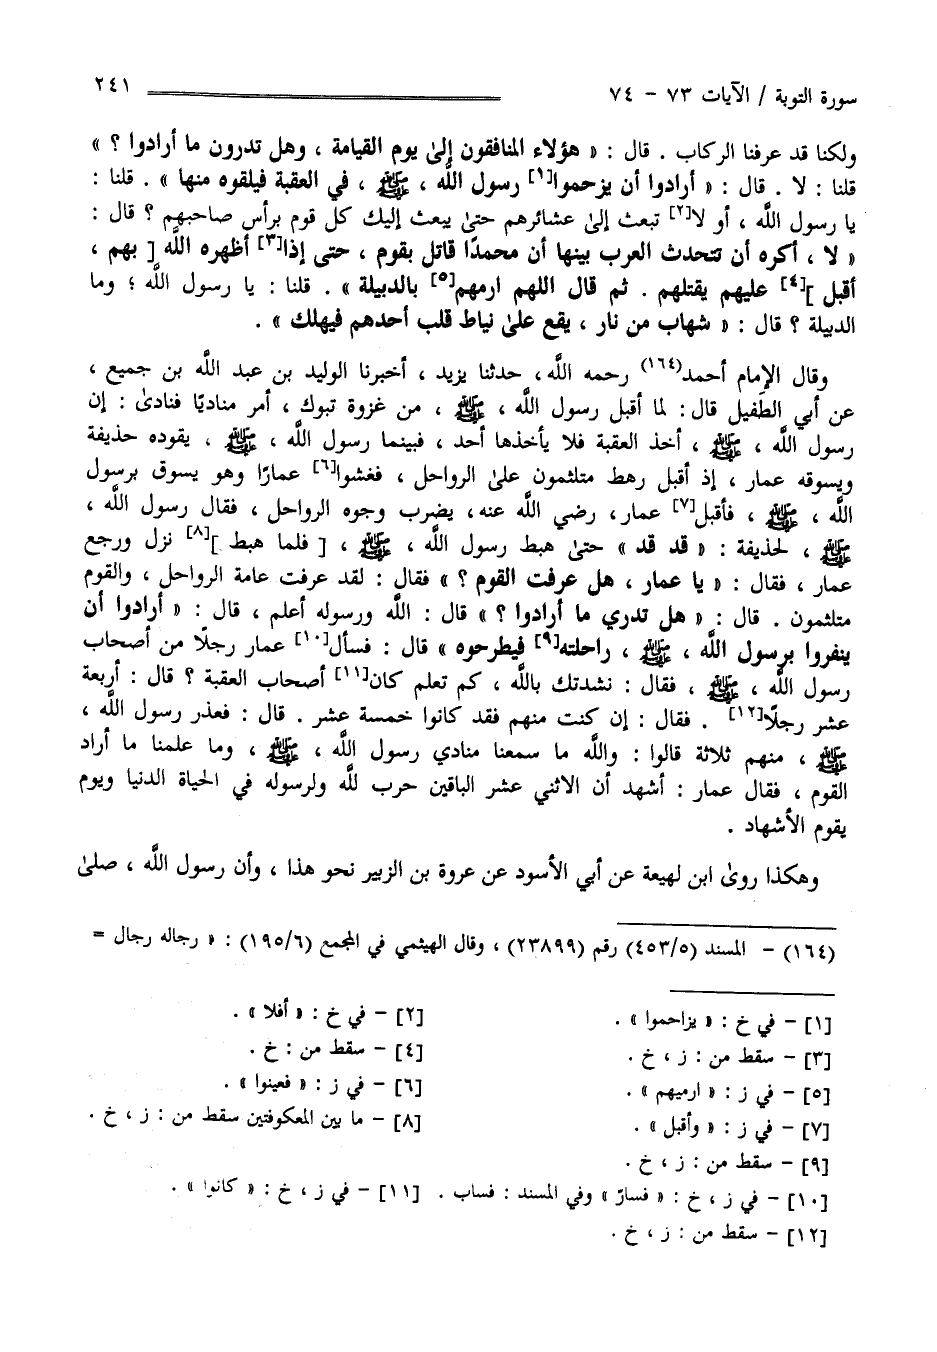 سورة التوبة / الآيات ٧٣ - ٧٤
٢٤١
ولكنا قد عرفنا الركاب . قال : « هؤلاء المنافقون إلىٰ يوم القيامة ، وهل تدرون ما أرادوا ؟ »
قلنا : لا . قال : « أرادوا أن يزحموا[١] رسول الله ، ﷺ ، في العقبة فيلقوه منها » . قلنا :
يا رسول الله ، أو لا[٢] تبعث إلىٰ عشائرهم حتىٰ يبعث إليك كل قوم برأس صاحبهم ؟ قال :
« لا ، أكره أن تتحدث العرب بينها أن محمدًا قاتل بقوم ، حتى إذا[٣] أظهره الله [ بهم ،
أقبل ][٤] عليهم يقتلهم . ثم قال اللهم ارمهم[٥] بالدبيلة » . قلنا : يا رسول الله ؛ وما
الدبيلة ؟ قال : « شهاب من نار ، يقع علىٰ نياط قلب أحدهم فيهلك » .
وقال الإمام أحمد(١٦٤) رحمه الله ، حدثنا يزيد ، أخبرنا الوليد بن عبد الله بن جميع ،
عن أبي الطفيل قال : لما أقبل رسول الله ، ﷺ ، من غزوة تبوك ، أمر مناديًا فنادىٰ : إن
رسول الله ، ﷺ ، أخذ العقبة فلا يأخذها أحد ، فبينما رسول الله ، ﷺ ، يقوده حذيفة
ويسوقه عمار ، إذ أقبل رهط متلثمون علىٰ الرواحل ، فغشوا[٦] عمارًا وهو يسوق برسول
الله ، ﷺ ، فأقبل[٧] عمار ، رضي الله عنه ، يضرب وجوه الرواحل ، فقال رسول الله ،
ﷺ ، لحذيفة : « قد قد » حتىٰ هبط رسول الله ، ﷺ ، [ فلما هبط ][٨] نزل ورجع
عمار ، فقال : « يا عمار ، هل عرفت القوم ؟ » فقال : لقد عرفت عامة الرواحل ، والقوم
متلثمون . قال : « هل تدري ما أرادوا ؟ » قال : الله ورسوله أعلم ، قال : « أرادوا أن
ينفروا برسول الله ، ﷺ ، راحلته[٩] فيطرحوه » قال : فسأل[١٠] عمار رجلًا من أصحاب
رسول الله ، ﷺ ، فقال : نشدتك بالله ، كم تعلم كان[١١] أصحاب العقبة ؟ قال : أربعة
عشر رجلًا[١٢] . فقال : إن كنت منهم فقد كانوا خمسة عشر . قال : فعذر رسول الله ،
ﷺ ، منهم ثلاثة قالوا : والله ما سمعنا منادي رسول الله ، ﷺ ، وما علمنا ما أراد
القوم ، فقال عمار : أشهد أن الاثني عشر الباقين حرب لله ولرسوله في الحياة الدنيا ويوم
يقوم الأشهاد .
وهكذا روىٰ ابن لهيعة عن أبي الأسود عن عروة بن الزبير نحو هذا ، وأن رسول الله ، صلىٰ
(١٦٤) - المسند (٤٥٣/٥) رقم (٢٣٨٩٩) ، وقال الهيثمي في المجمع (١٩٥/٦) : « رجاله رجال =
[١] - في خ : « يزاحموا » . [٢] - في خ : « أفلا » .
[٣] - سقط من : ز ، خ . [٤] - سقط من : خ .
[٥] - في ز : « ارميهم » . [٦] - في ز : « فعينوا » .
[٧] - في ز : « وأقبل » . [٨] - ما بين المعكوفتين سقط من : ز ، خ .
[٩] - سقط من : ز ، خ .
[١٠] - في ز ، خ : « فسارّ » وفي المسند : فساب . [١١] - في ز ، خ : « كانوا » .
[١٢] - سقط من : ز ، خ .